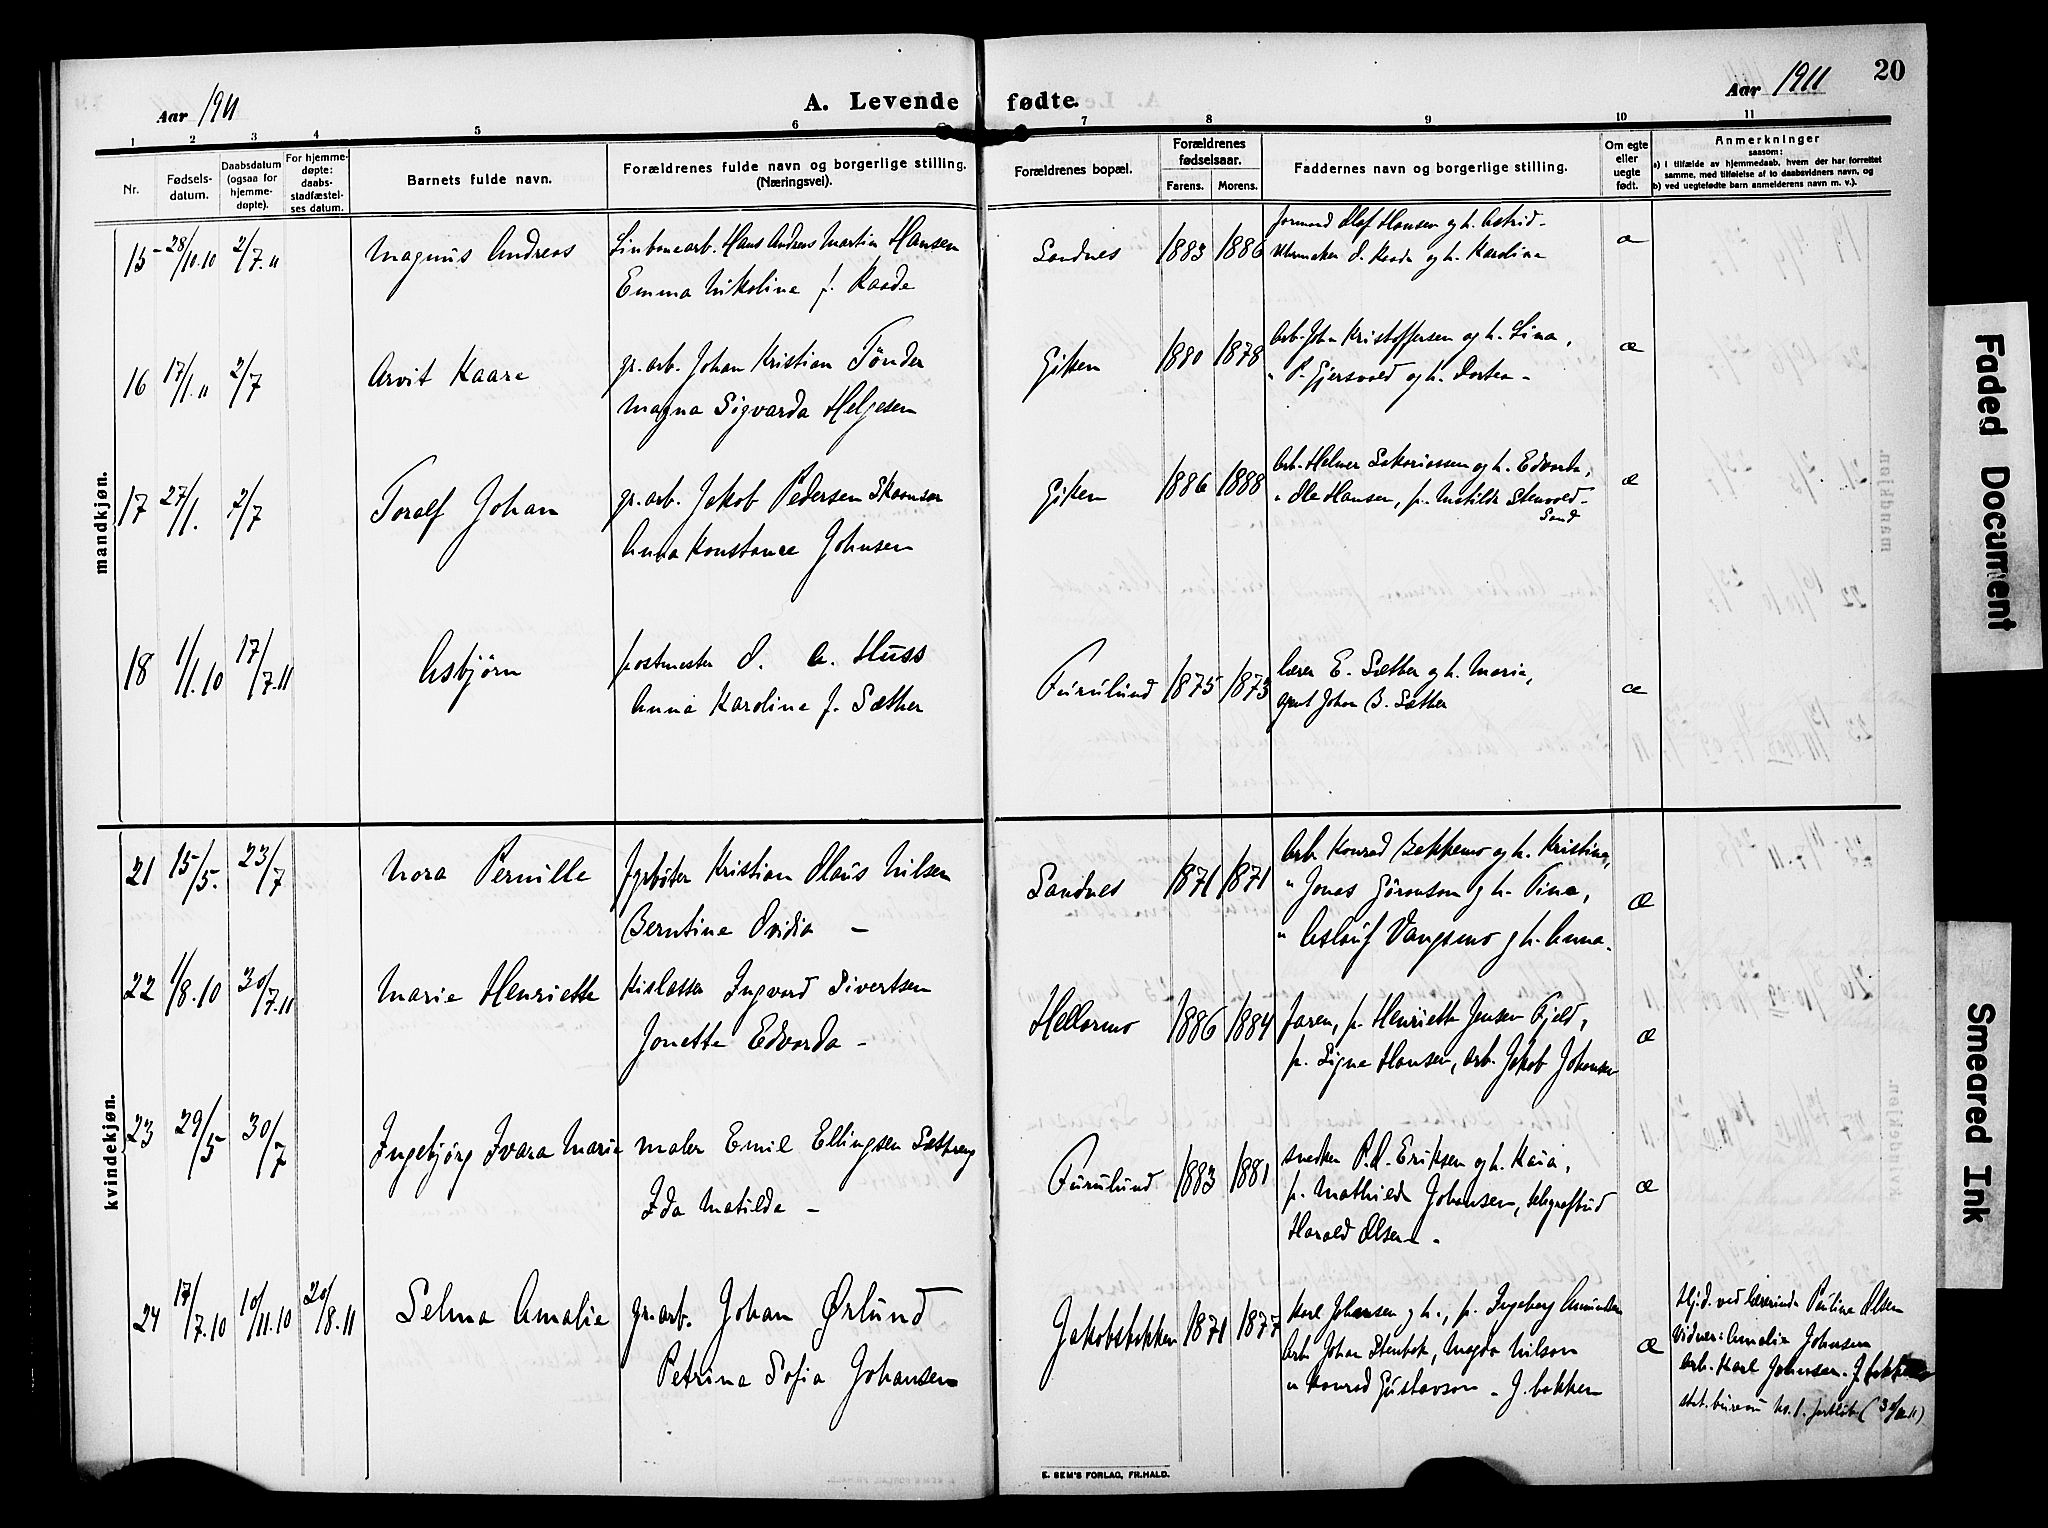 Aar 1911
A. Levende fødte.
Aar 1911
20
1 2 3 4 5 6 7 8 9 10 11
Nr.
Fødsels-
datum.
Daabsdatum
(ogsaa for
hjemme-
døpte).
For hjemme-
døpte:
daabs-
stadfæstel-
ses datum.
Barnets fulde navn.
Forældrenes fulde navn og borgerlige stilling.
(Næringsvei).
Forældrenes bopæl.
Forældrenes
fødselsaar.
Farens. Morens.
Faddernes navn og borgerlige stilling.
Om egte
eller
uegte
født.
Anmerkninger
saasom:
a) i tilfælde av hjemmedaab, hvem der har forrettet
samme, med tilføielse af to daabsvidners navn, og
b) ved uegtefødte barn anmelderens navn m. v.).
mandkjøn.
15 28/10.10 2/7.11 Magnus Andreas
Linbanearb. Hans Andreas Martin Hansen
Emma Nikoline f. Raade
Sandnes 1883 1886
formand Olaf Hansen og h. Astrid
Urmaker O. Raade og h. Karolina
æ
16 17/1.11 2/7 Arvit Kaare
gr.arb. Johan Kristian Tönder
Magna Sigvarda Helgesen
Giken 1880 1878
Arb. Joh. Kristoffersen og h. Lina,
" P. Gjersvold og h. Dortea -
æ
17 27/1. 2/7 Toralf Johan
gr.arb. Jakob Pedersen
Anna Konstance Johnsen
Giken 1886 1888
Arb. Helmer Sakariassen og h. Edvarda,
" Ole Hansen, p. Matilde Stenvold-
Sand
æ
18 1/1.10 17/7.11 Asbjørn
postmester O. A. Huss
Anna Karoline f. Sæther
Furulund 1875 1873
lærer E. Sæther og h. Maria,
agent Johan B. Sæther
æ
kvindekjøn.
21 15/5. 23/7 Nora Pernille
fyrbøter Kristian Olaus Nilsen
Berntine Ovidia -
Sandnes 1871 1871
Arb. Konrad Bakkemo og h. Kristina,
" Jonas Göranson og h. Tina,
" Aslauf Vangsmo og h. Anna.
æ
22 1/8.10 30/7.11 Marie Henriette
Kislasser Ingvard Sivertsen
Jonette Edvarda -
Hellarmo 1886 1884
faren, p. Henriette Jensen Fjeld,
p. Signe Hansen, arb. Jakob Johansen
æ
23 29/5 30/7 Ingebjörg Ivara Marie
maler Emil Ellingsen
Ida Matilda -
Furulund 1883 1881
snedker P. O. Eriksen og h. Kaia,
p. Mathilde Johansen, telegrafbud
Harald Olsen -
æ
24 17/7.10 10/11.10 20/8.11 Selma Amalie
gr.arb. Johan Ørlund
Petrina Sofia Johansen
Jakobsbakken 1871 1877
Karl Johansen og h., p. Ingeborg Amundsen
Arb. Johan Stenbok, Magda Nilson
" Konrad Gustavson - J.bakken
æ
Hj.d. ved lærerinde Paulina Olsen
Vidner: Amalia Johansen
arb. Karl Johansen. J.bakken
stat. bureau No. 1.
E. SEM'S FORLAG, FR.HALD.
Faded Document
Smeared Ink